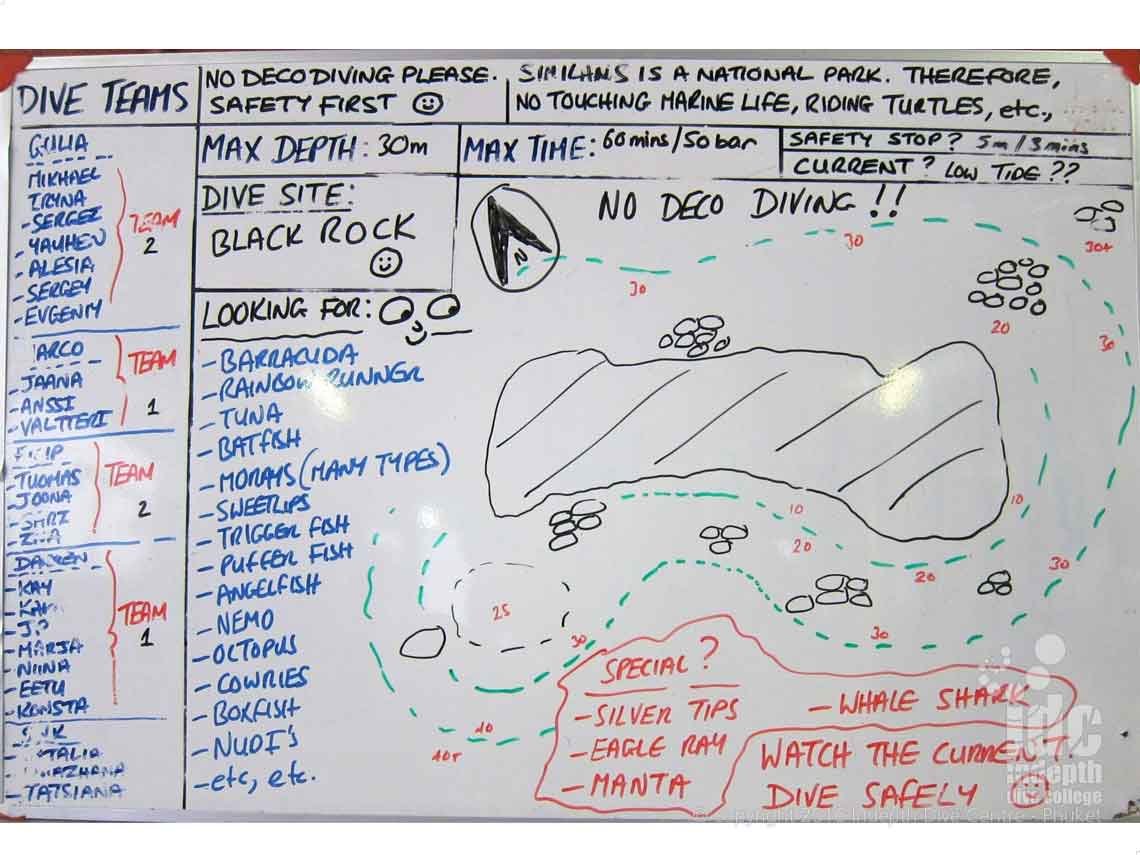 DIVE TEAMS
GIULIA
MIKHAEL
IRYNA
- SERGEZ
- YAUHEN
- ALESIA
- SERGEY
- EVGENIY
TEAM
2
JAANA
- ANSSI
- VALTTERI
TEAM
1
- TUOMAS
- JOONA
TEAM
2
- KAY
- J?
- MARJA
- NIINA
- EETU
- KONSTA
TEAM
1
- TATSIANA
NO DECO DIVING PLEASE.
SAFETY FIRST
SIMILANS IS A NATIONAL PARK. THEREFORE,
NO TOUCHING MARINE LIFE, RIDING TURTLES, etc.,
MAX DEPTH: 30m
MAX TIME: 60 mins/50 bar
SAFETY STOP? 5m/3mins
CURRENT? LOW TIDE??
DIVE SITE:
BLACK ROCK
LOOKING FOR:
- BARRACUDA
- RAINBOW RUNNER
- TUNA
- BATFISH
- MORAYS (MANY TYPES)
- SWEETLIPS
- TRIGGER FISH
- PUFFER FISH
- ANGELFISH
- NEMO
- OCTOPUS
- COWRIES
- BOXFISH
- NUDI'S
- etc, etc.
N
NO DECO DIVING!!
30
30
30+
20
30
10
10
20
20
30
30
25
30
40
40+
SPECIAL?
- SILVER TIPS
- EAGLE RAY
- MANTA
- WHALE SHARK
WATCH THE CURRENT!
DIVE SAFELY
idc
indepth
dive college
Indepth Dive Centre - Phuket